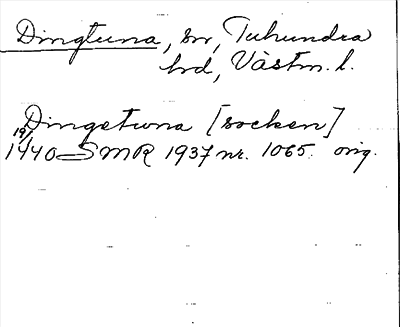 Dingtuna, sn, Tuhundra
hd, Västm. l.
Dingetwna [socken]
19/1
1440 SMR 1937 nr. 1065. orig.